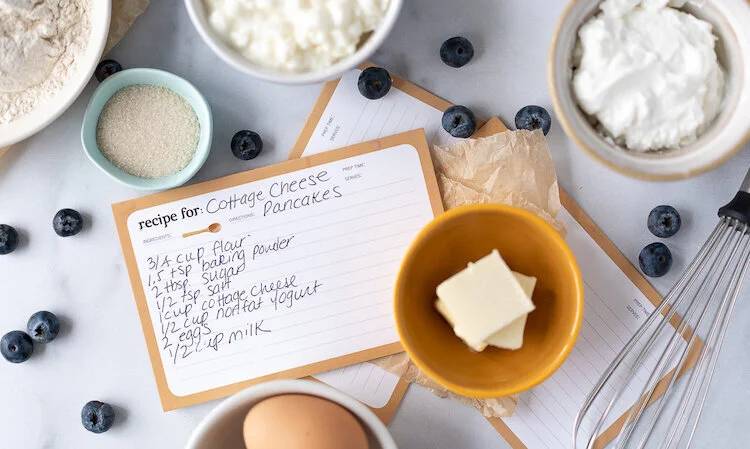 PREP TIME:
SERVES:
recipe for: Cottage Cheese
Pancakes
PREP TIME:
SERVES:
INGREDIENTS:
DIRECTIONS:
3/4 cup flour
1.5 tsp baking powder
2 tbsp sugar
1/2 tsp salt
1 cup cottage cheese
1/2 cup nonfat yogurt
2 eggs
1/2 cup milk
PREP TIME:
SERVES: